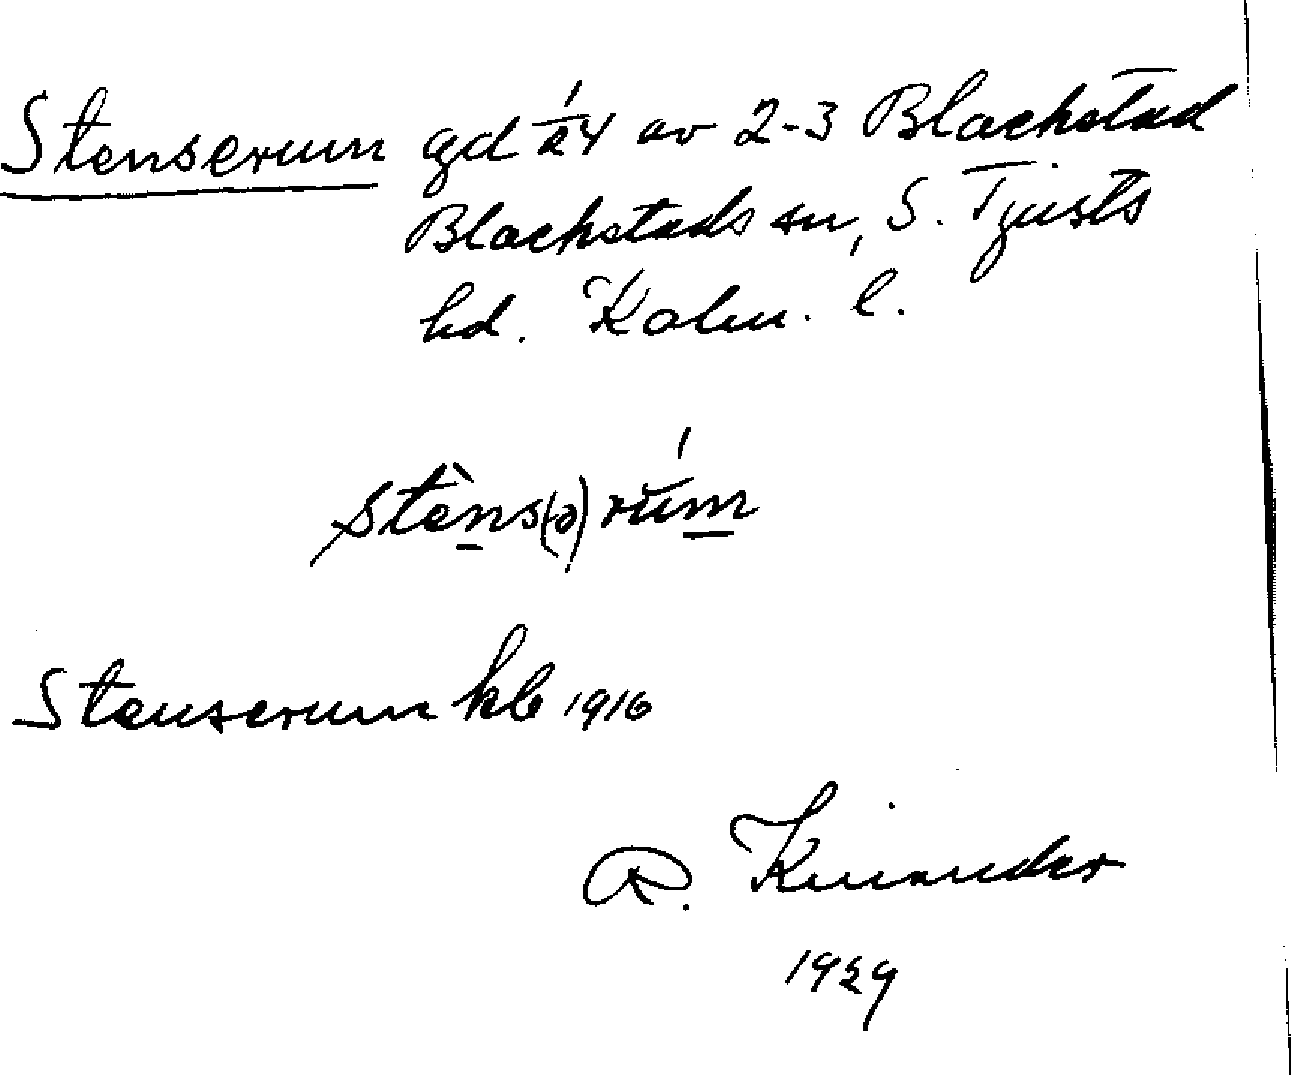 Stenserum gd 1/24 av 2-3 Blackstad
Blackstads sn, S. Tjusts
hd. Kalm. l.
stèns(ə)rúm
Stenserum kb 1916
R. Kinander
1929